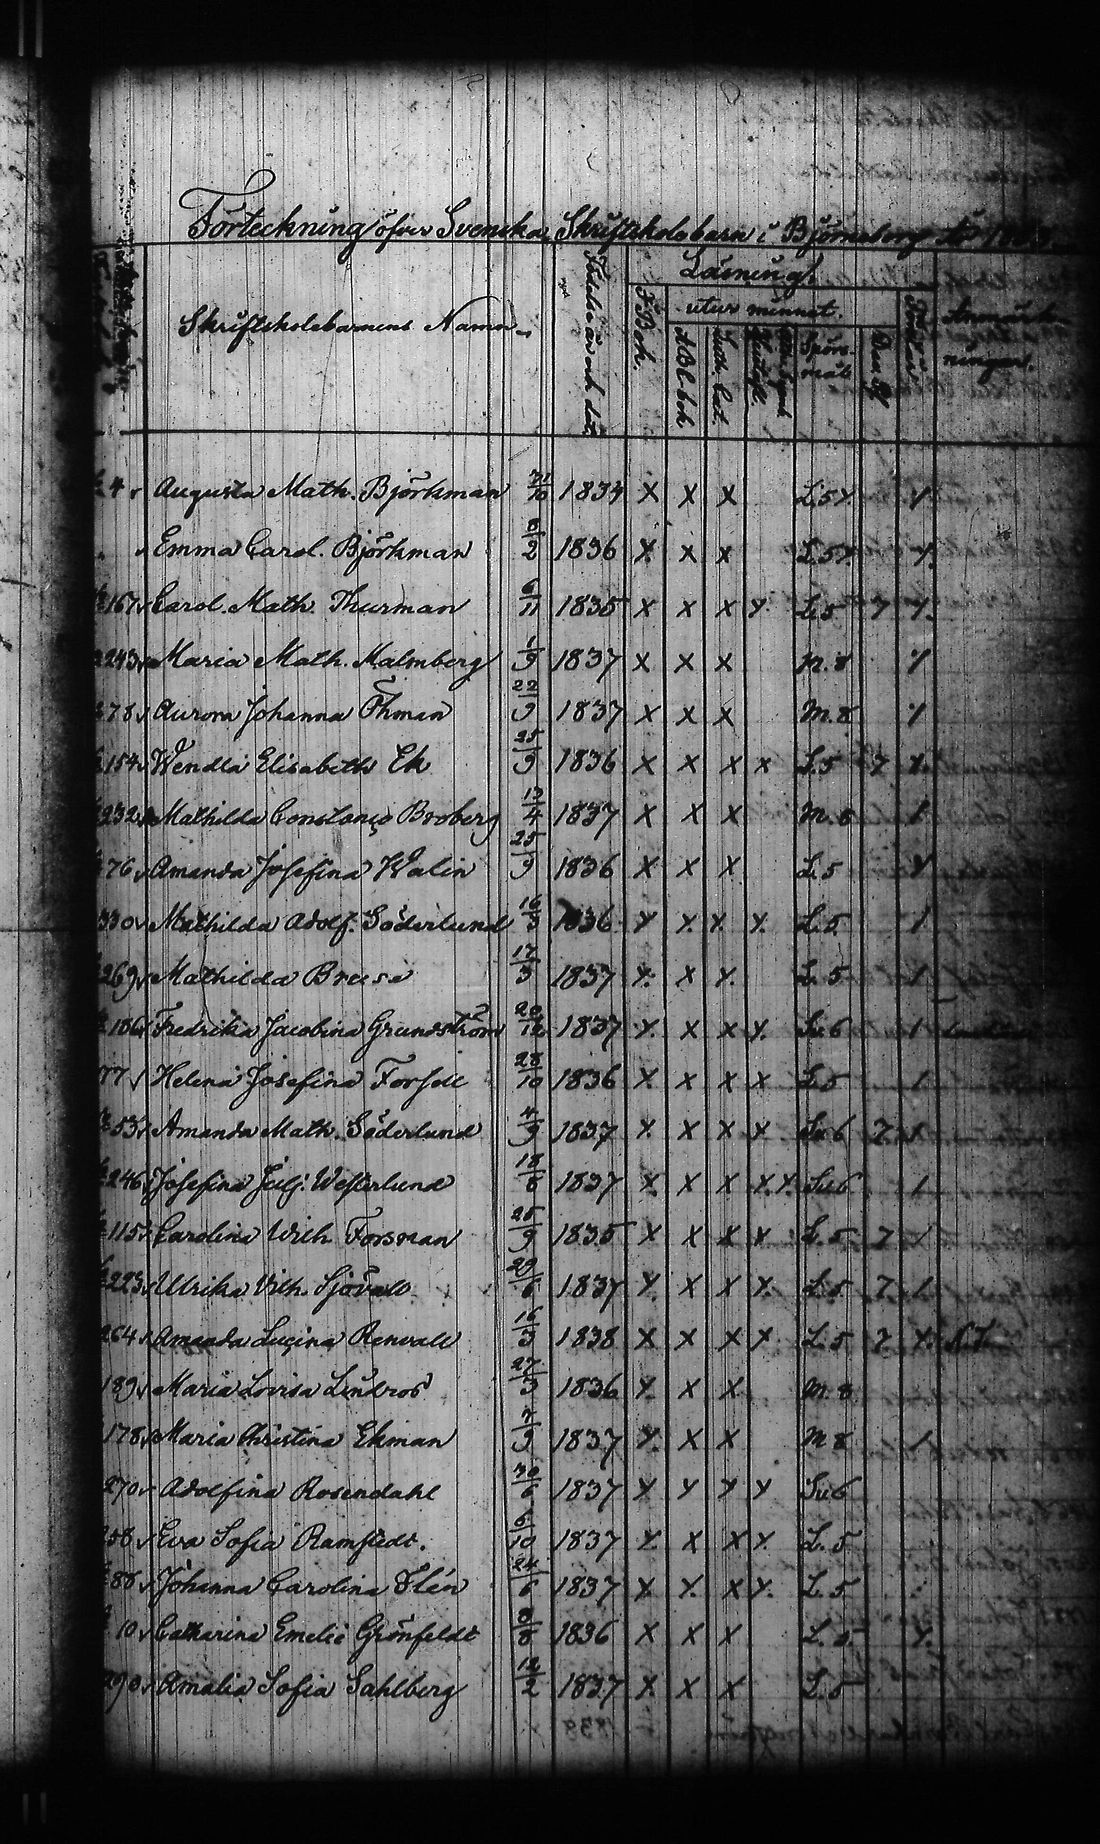 Förteckning öfver Svenska Skriftskolebarn i Björneborg År
Skriftskolebarnens Namn
Födelse år och dat.
Läsning
F. Bok.
utur minnet.
A B C-bok
Luth. Cat.
Hustafl.
Spörsmål
Förstår
Anmärkningar.
4 Augusta Math. Björkman 21/10 1834 x x x L. 5
Emma Carol. Björkman 8/2 1836 x x x L. 5
167 Carol. Math. Thurman 6/11 1835 x x x x L. 5 7
243 Maria Math. Malmberg 1/9 1837 x x x M. 8
78 Aurora Johanna Öhman 22/9 1837 x x x M. 8
154 Wendla Elisabeth Ek 25/9 1836 x x x x L. 5 7
232 Mathilda Constança Broberg 13/4 1837 x x x M. 8
76 Amanda Josefina Walin 25/9 1836 x x x L. 5
330 Mathilda Adolf. Söderlund 16/3 1836 x x x x L. 5
269 Mathilda Breese 17/3 1837 x x x L. 5
186 Fredrika Jacobina Grundström 20/12 1837 x x x x Su 6
77 Helena Josefina Forsell 28/10 1836 x x x x L. 5
53 Amanda Math. Söderlund 4/9 1837 x x x x Su 6 7
246 Josefina Westerlund 18/8 1837 x x x x x Su 6
115 Carolina Wilh. Forsman 25/9 1835 x x x x L. 5 7
223 Ulrika Vilh. Sjövall 29/6 1837 x x x x L. 5 7
264 Amanda Luçina Renvall 16/3 1838 x x x x L. 5 7
189 Maria Lovisa Lindros 27/3 1836 x x x M. 8
178 Maria Christina Ekman 7/9 1837 x x x M 8
270 Adolfina Rosendahl 30/6 1837 x x x x Su 6
58 Eva Sofia Ramstedt. 6/10 1837 x x x x L. 5
88 Johanna Carolina Flén 24/6 1837 x x x x L. 5
10 Catharina Emelie Grönfeldt 8/8 1836 x x x L. 5
290 Amalia Sofia Sahlberg 12/2 1837 x x x L. 5